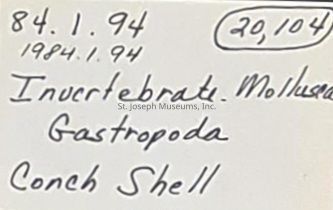 84.1.94 20,104
1984.1.94
Invertebrate. Mollusca
St. Joseph Museums, Inc.
Gastropoda
Conch Shell